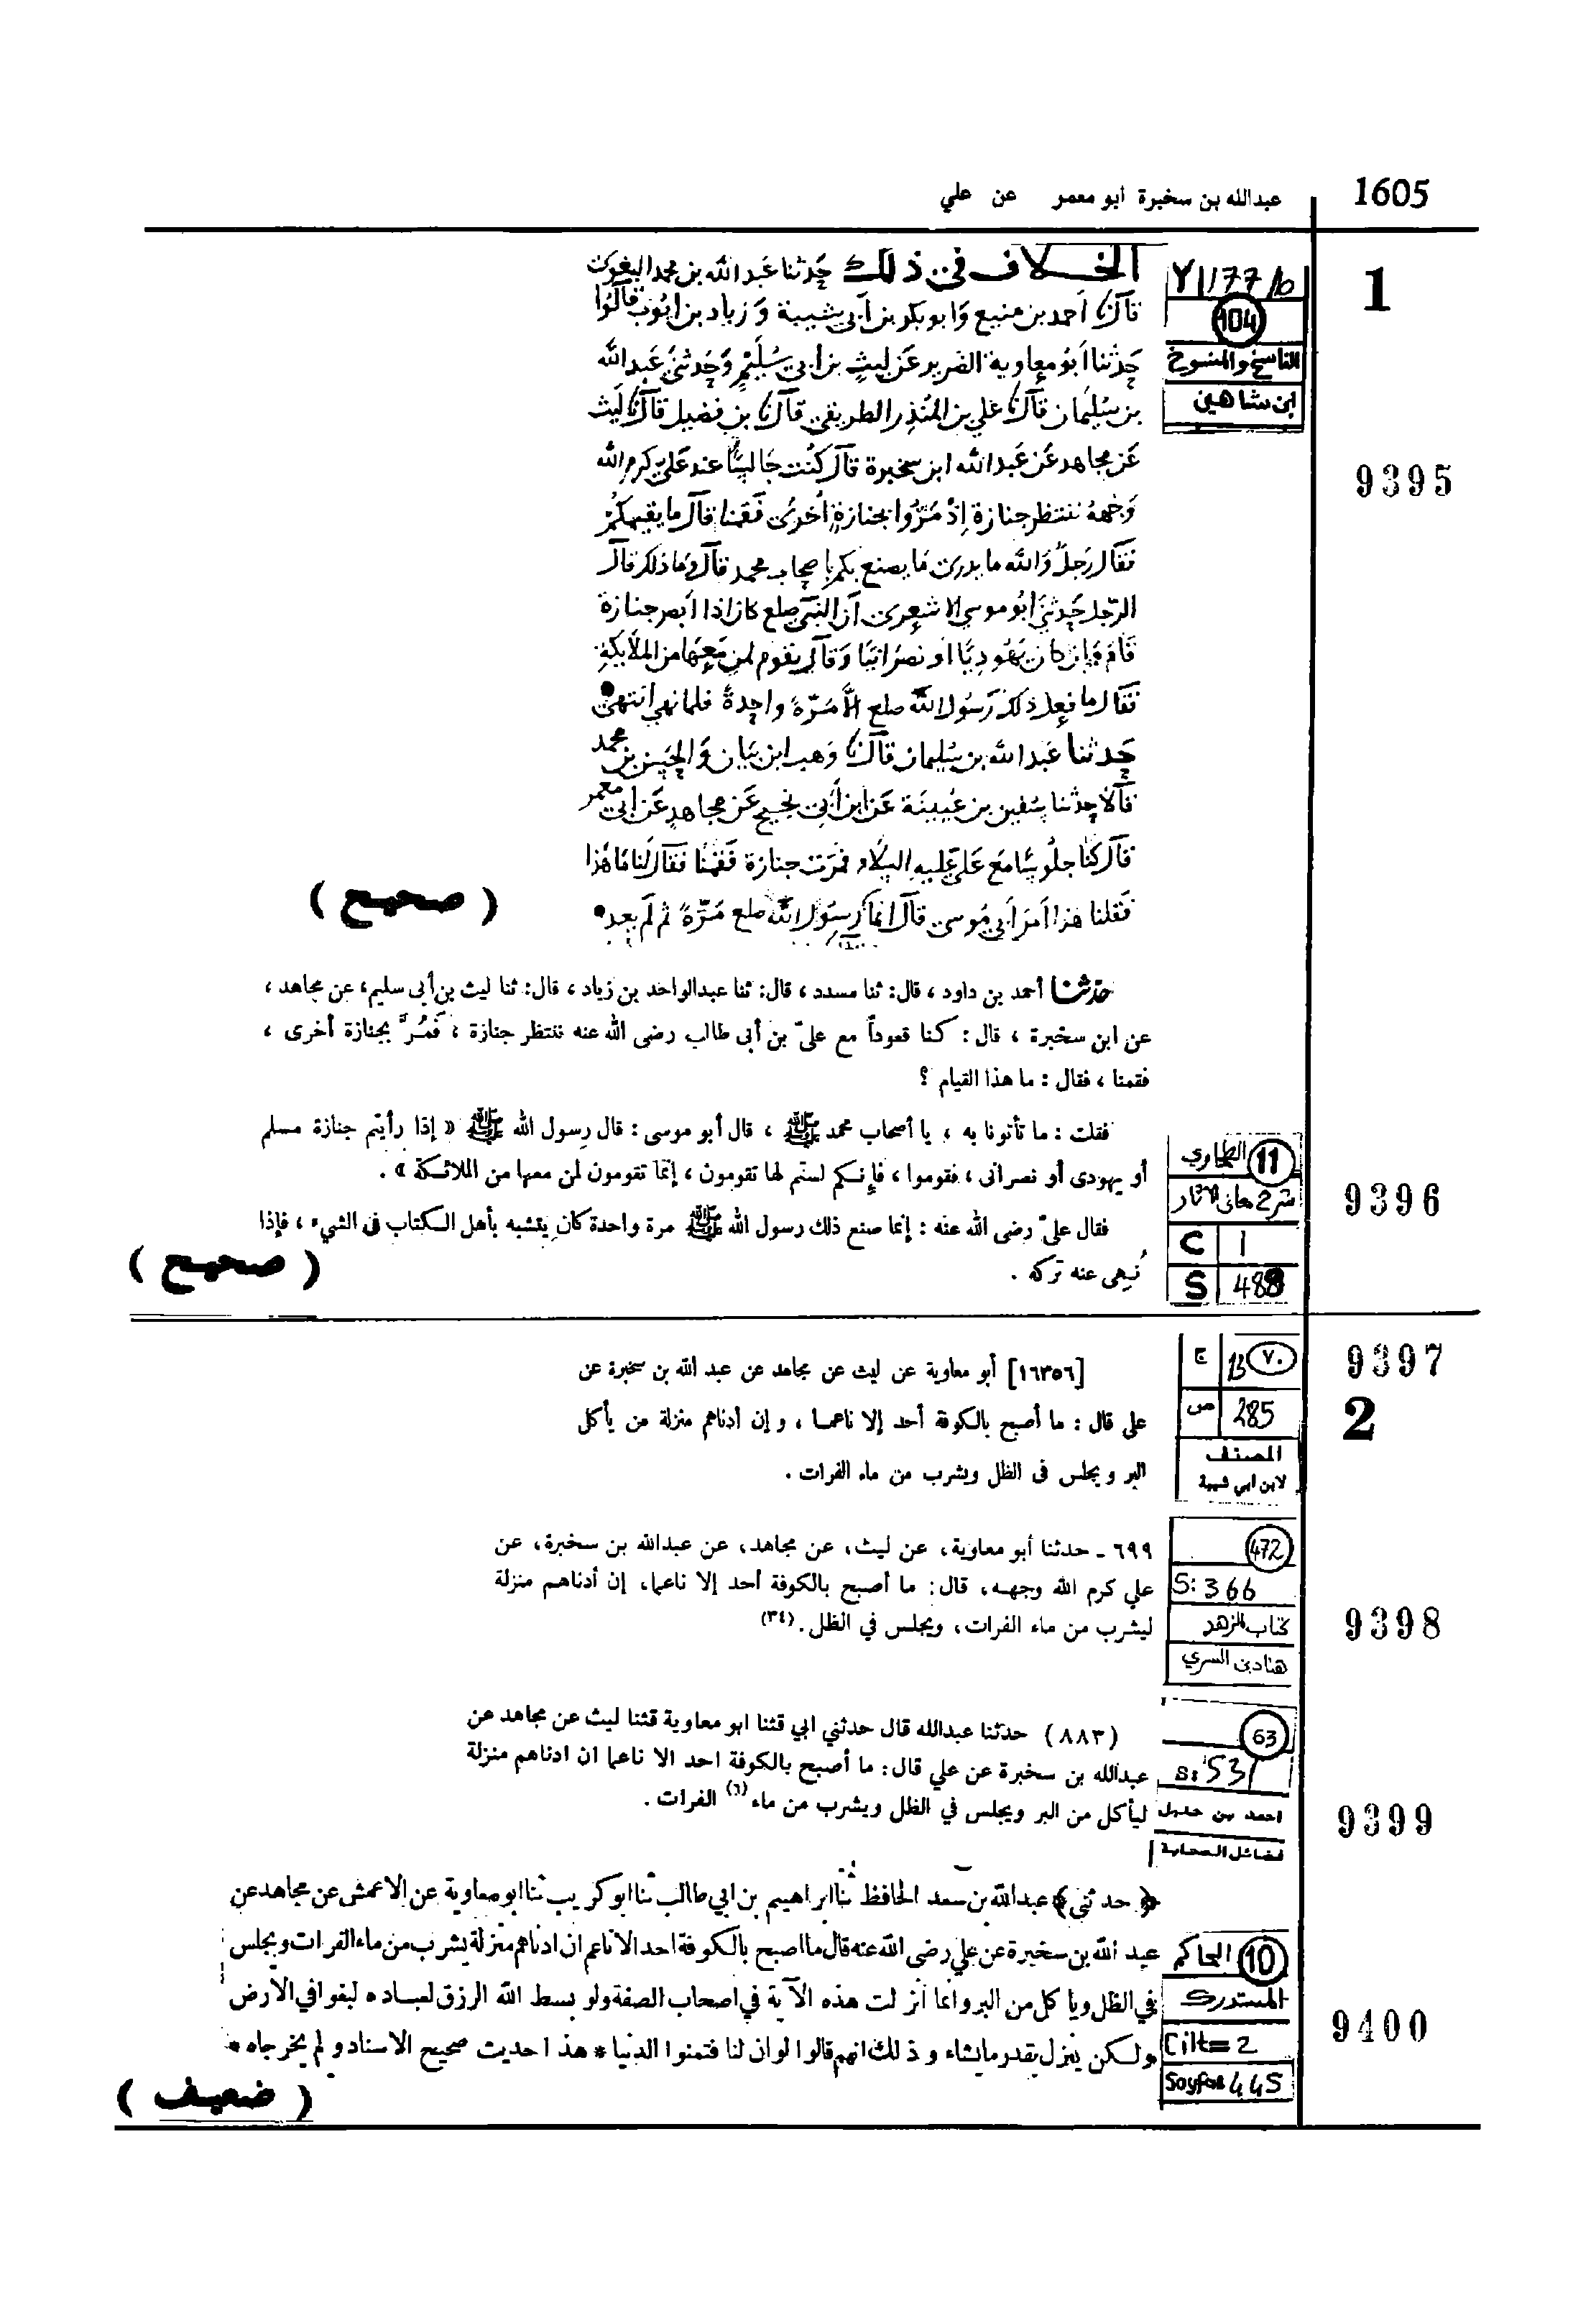 1605
عبدالله بن سخبرة ابو معمر عن علي
1
Y 177/b
104
الناسخ والمنسوخ
ابن شاهين
9395
الخلاف في ذلك حدثنا عبد الله بن محمد البغوي
قال نا احمد بن منيع وابو بكر بن ابي شيبة وزياد بن ايوب قالوا
حدثنا ابو معاوية الضرير عن ليث بن ابي سليم وحدثني عبد الله
بن سليمان قال نا علي بن المنذر الطريقي قال نا بن فضيل قال نا ليث
عن مجاهد عن عبد الله ابن سخبرة قال كنت جالسا عند علي كرم الله
وجهه ننتظر جنازة إذ مروا بجنازة اخرى فقمنا قال ما يقيمكم
فقال رجل والله ما يدرى ما يصنع بكم يا صحاب محمد قال وما ذلك قال
الرجل حدثني ابو موسى الاشعرى ان النبي صلع كان اذا ابصر جنازة
قام وإن كان يهوديا او نصرانيا وقال يقوم لمن معها من الملائكة
فقال ما فعل ذلك رسول الله صلع الا مرة واحدة فلما نهي انتهى
حدثنا عبد الله بن سليمان قال نا وهب ابن بيان والحسن بن محمد
قالا حدثنا سفين بن عيينة عن ابن ابي نجيح عن مجاهد عن ابي معمر
قال كنا جلوسا مع علي عليه السلام فمرت جنازة فقمنا فقال لنا ما هذا
فقلنا هذا امر ابي موسى قال انما رسول الله صلع مرة ثم لم يعد
( صحيح )
حدثنا أحمد بن داود ، قال: ثنا مسدد ، قال: ثنا عبدالواحد بن زياد ، قال: ثنا ليث بن أبى سليم، عن مجاهد ،
عن ابن سخبرة ، قال : كنا قعوداً مع علىّ بن أبى طالب رضى الله عنه ننتظر جنازة ، فَمُرَّ بجنازة أخرى ،
فقمنا ، فقال : ما هذا القيام ؟
فقلت : ما تأتونا به ، يا أصحاب محمد ﷺ ، قال أبو موسى : قال رسول الله ﷺ « إذا رأيتم جنازة مسلم
أو يهودى أو نصرانى ، فقوموا ، فإنكم لستم لها تقومون ، إنما تقومون لمن معها من الملائكة » .
فقال علىّ رضى الله عنه : إنما صنع ذلك رسول الله ﷺ مرة واحدة كان يتشبه بأهل الكتاب فى الشيء ، فإذا
نُهِى عنه تركه .
( صحيح )
11 الطحاوي
شرح معاني الآثار
C 1
S 488
9396
9397
2
٧٠ 13 ج
285 ص
المصنف
لابن ابي شيبة
[١٦٣٥٦] أبو معاوية عن ليث عن مجاهد عن عبد الله بن سخبرة عن
على قال : ما أصبح بالكوفة أحد إلا ناعما ، وإن أدناهم منزلة من يأكل
البر ويجلس فى الظل ويشرب من ماء الفرات .
472
S: 366
كتاب الزهد
هناد بن السري
9398
٦٩٩ - حدثنا أبو معاوية، عن ليث، عن مجاهد، عن عبدالله بن سخبرة، عن
علي كرم الله وجهه، قال: ما أصبح بالكوفة أحد إلا ناعما، إن أدناهم منزلة
ليشرب من ماء الفرات، ويجلس في الظل.(٣٤)
63
s: 531
احمد بن حنبل
فضائل الصحابة
9399
(٨٨٣) حدثنا عبدالله قال حدثني ابي قثنا ابو معاوية قثنا ليث عن مجاهد عن
عبدالله بن سخبرة عن علي قال: ما أصبح بالكوفة احد الا ناعما ان ادناهم منزلة
ليأكل من البر ويجلس في الظل ويشرب من ماء (٦) الفرات .
﴿ حدثني ﴾ عبدالله بن سعد الحافظ ثنا ابراهيم بن ابي طالب ثنا ابو كريب ثنا ابو معاوية عن الاعمش عن مجاهد عن
عبد الله بن سخبرة عن علي رضى الله عنه قال ما اصبح بالكوفة احد الا ناعم ان ادناهم منزلة يشرب من ماء الفرات ويجلس
في الظل ويأكل من البر وانما أنزلت هذه الآية في اصحاب الصفة ولو بسط الله الرزق لعباده لبغوا في الأرض
ولكن ينزل بقدر ما يشاء وذلك انهم قالوا لو ان لنا فتمنوا الدنيا * هذا حديث صحيح الاسناد ولم يخرجاه *
( ضعيف )
10 الحاكم
المستدرك
Cilt= 2
Sayfa 445
9400